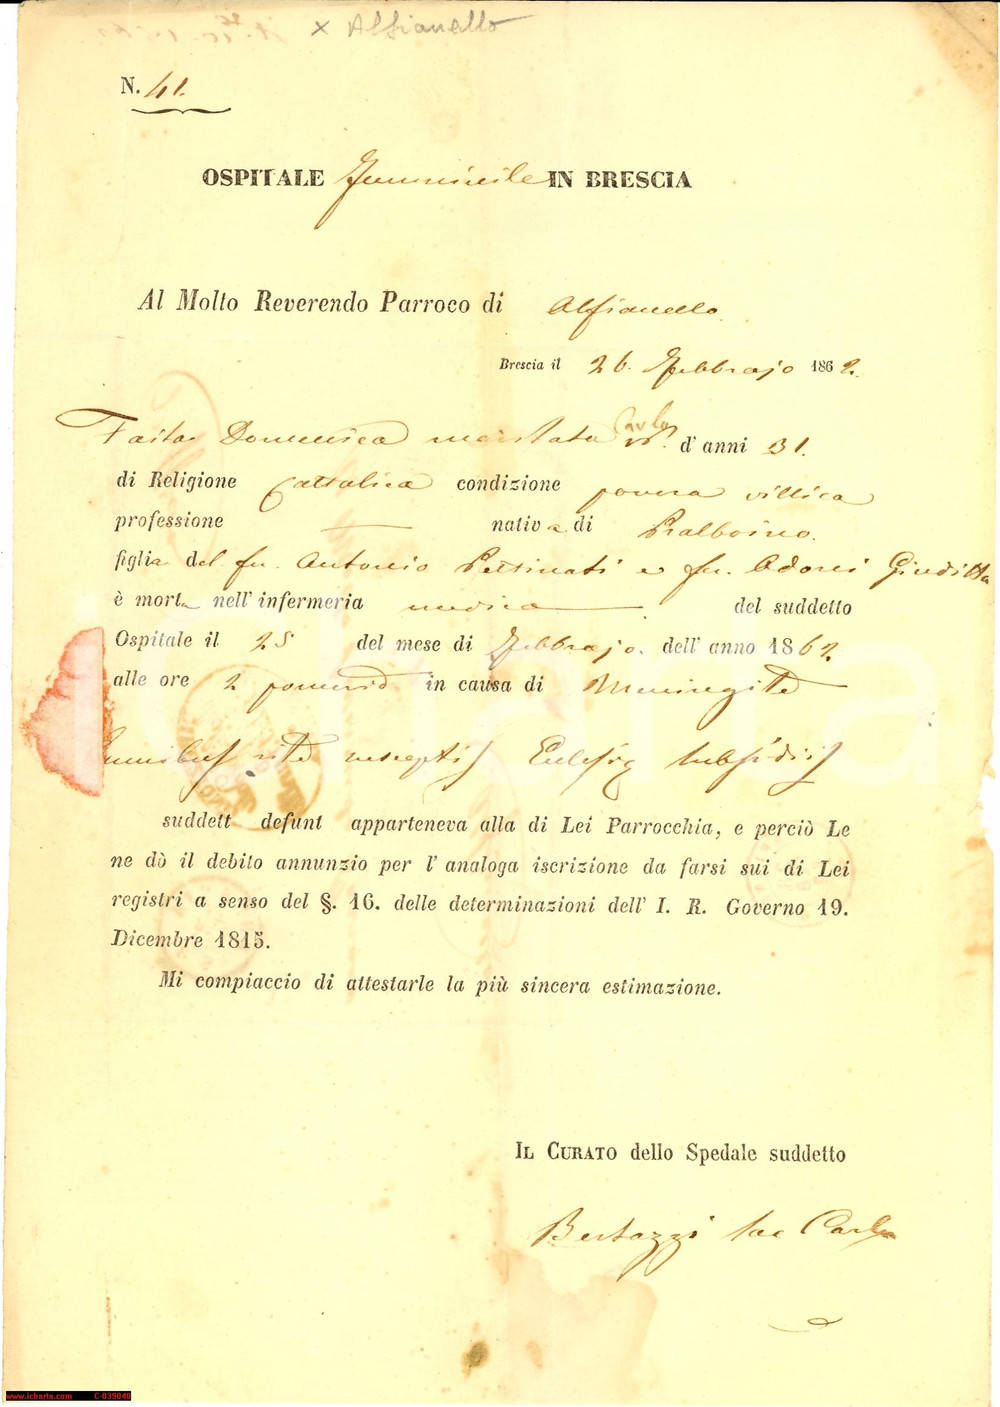 x Alfianello
N. 41.
OSPITALE Femminile IN BRESCIA
Al Molto Reverendo Parroco di Alfianello
Brescia il 26. Febbrajo 1862.
Faita Domenica maritata Carlo d'anni 31.
di Religione Cattolica condizione povera villica
professione — nativa di Pralboino.
figlia del fu. Antonio e fu. Adorni Giuditta
è morta nell'infermeria medica — del suddetto
Ospitale il 25 del mese di Febbrajo. dell'anno 1862
alle ore 2 pomerid in causa di Meningite
Omnibus rite receptis Eclesiæ subsidiis
suddett defunt apparteneva alla di Lei Parrocchia, e perciò Le
ne dò il debito annunzio per l'analoga iscrizione da farsi sui di Lei
registri a senso del §. 16. delle determinazioni dell'I. R. Governo 19.
Dicembre 1815.
Mi compiaccio di attestarle la più sincera estimazione.
IL CURATO dello Spedale suddetto
Bertazzi Sac Carlo
www.icharta.com C-039040